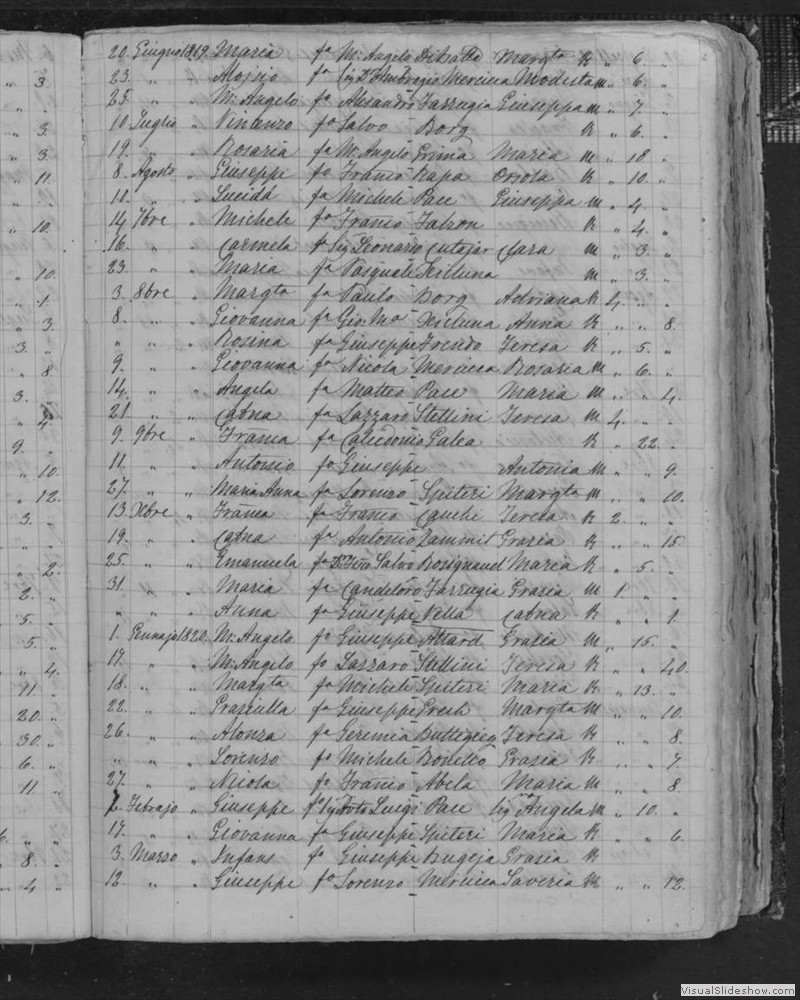 3
3
3
11
10
10
1
3
3
8
3
4
9
10
12
3
2
2
5
5
4
11
20
30
6
11
8
4
20. Giugno 1819. Maria fa M: Angelo Margta R " 6. "
23. " " Aloisio fo Sig Dr Ambrogio Mercieca Modesta m " 6. "
25. " " M: Angelo fo Alesandro Farrugia Giuseppa m " 7. "
10. Luglio " Vincenzo fo Salvo Borg R " 6. "
19. " " Rosaria fa M: Angelo Grima Maria m " 18 "
8. Agosto " Giuseppe fo Franco Rapa Orsola R " 10. "
10. " " Lucida fa Michele Pace Giuseppa m " 4. "
14. 7bre " Michele fo Franco Falzon R " 4. "
16. " " Carmela fa Sig Leonardo Cutajar Clara m " 3. "
23. " " Maria fa Pasquale m " 3. "
3. 8bre " Margta fa Paulo Borg Adriana R 4. " "
8. " " Giovanna fa Gio: Ma Xicluna Anna R " " 8.
" " " Rosina fa Giuseppe Frendo Teresa R " 5. "
9. " " Giovanna fa Nicola Mercieca Rosaria m " 6. "
14. " " Angela fa Matteo Pace Maria m " " 4.
21. " " Catna fa Lazzaro Stellini Teresa m 4. " "
9. 9bre " Franca fa Calcedonio Galea R " 22. "
11. " " Antonio fo Giuseppe Antonia m " " 9.
27. " " Maria Anna fa Lorenzo Spiteri Margta m " " 10.
13. Xbre " Franca fa Franco Cauchi Teresa R 2. " "
19. " " Catna fa Antonio Zammit Grazia R " " 15.
25. " " Emanuela fa Salvo Maria R " 5. "
31. " " Maria fa Candeloro Farrugia Grazia m 1 " "
" " " Anna fa Giuseppe Vella Catna R " " 1.
1. Gennajo 1820. M: Angelo fo Giuseppe Attard Grazia m " 15. "
17. " " M: Angelo fo Lazzaro Stellini Teresa R " " 40.
18. " " Margta fa Michele Spiteri Maria R " 13. "
22. " " Prassiulla fa Giuseppe Grech Margta m " " 10.
26. " " Alonza fa Geremia Buttigieg Teresa R " " 8.
" " " Lorenzo fo Michele Bonello Grazia R " " 7
27. " " Nicola fo Franco Abela Maria m " " 8.
2. Febrajo " Giuseppe fo Sig Luigi Pace Sig Angela m " 10. "
17. " " Giovanna fa Giuseppe Spiteri Maria R " " 6.
3. Marzo " Infans fo Giuseppe Bugeja Grazia R
12. " " Giuseppe fo Lorenzo Mercieca Saveria m " " 12.
VisualSlideshow.com